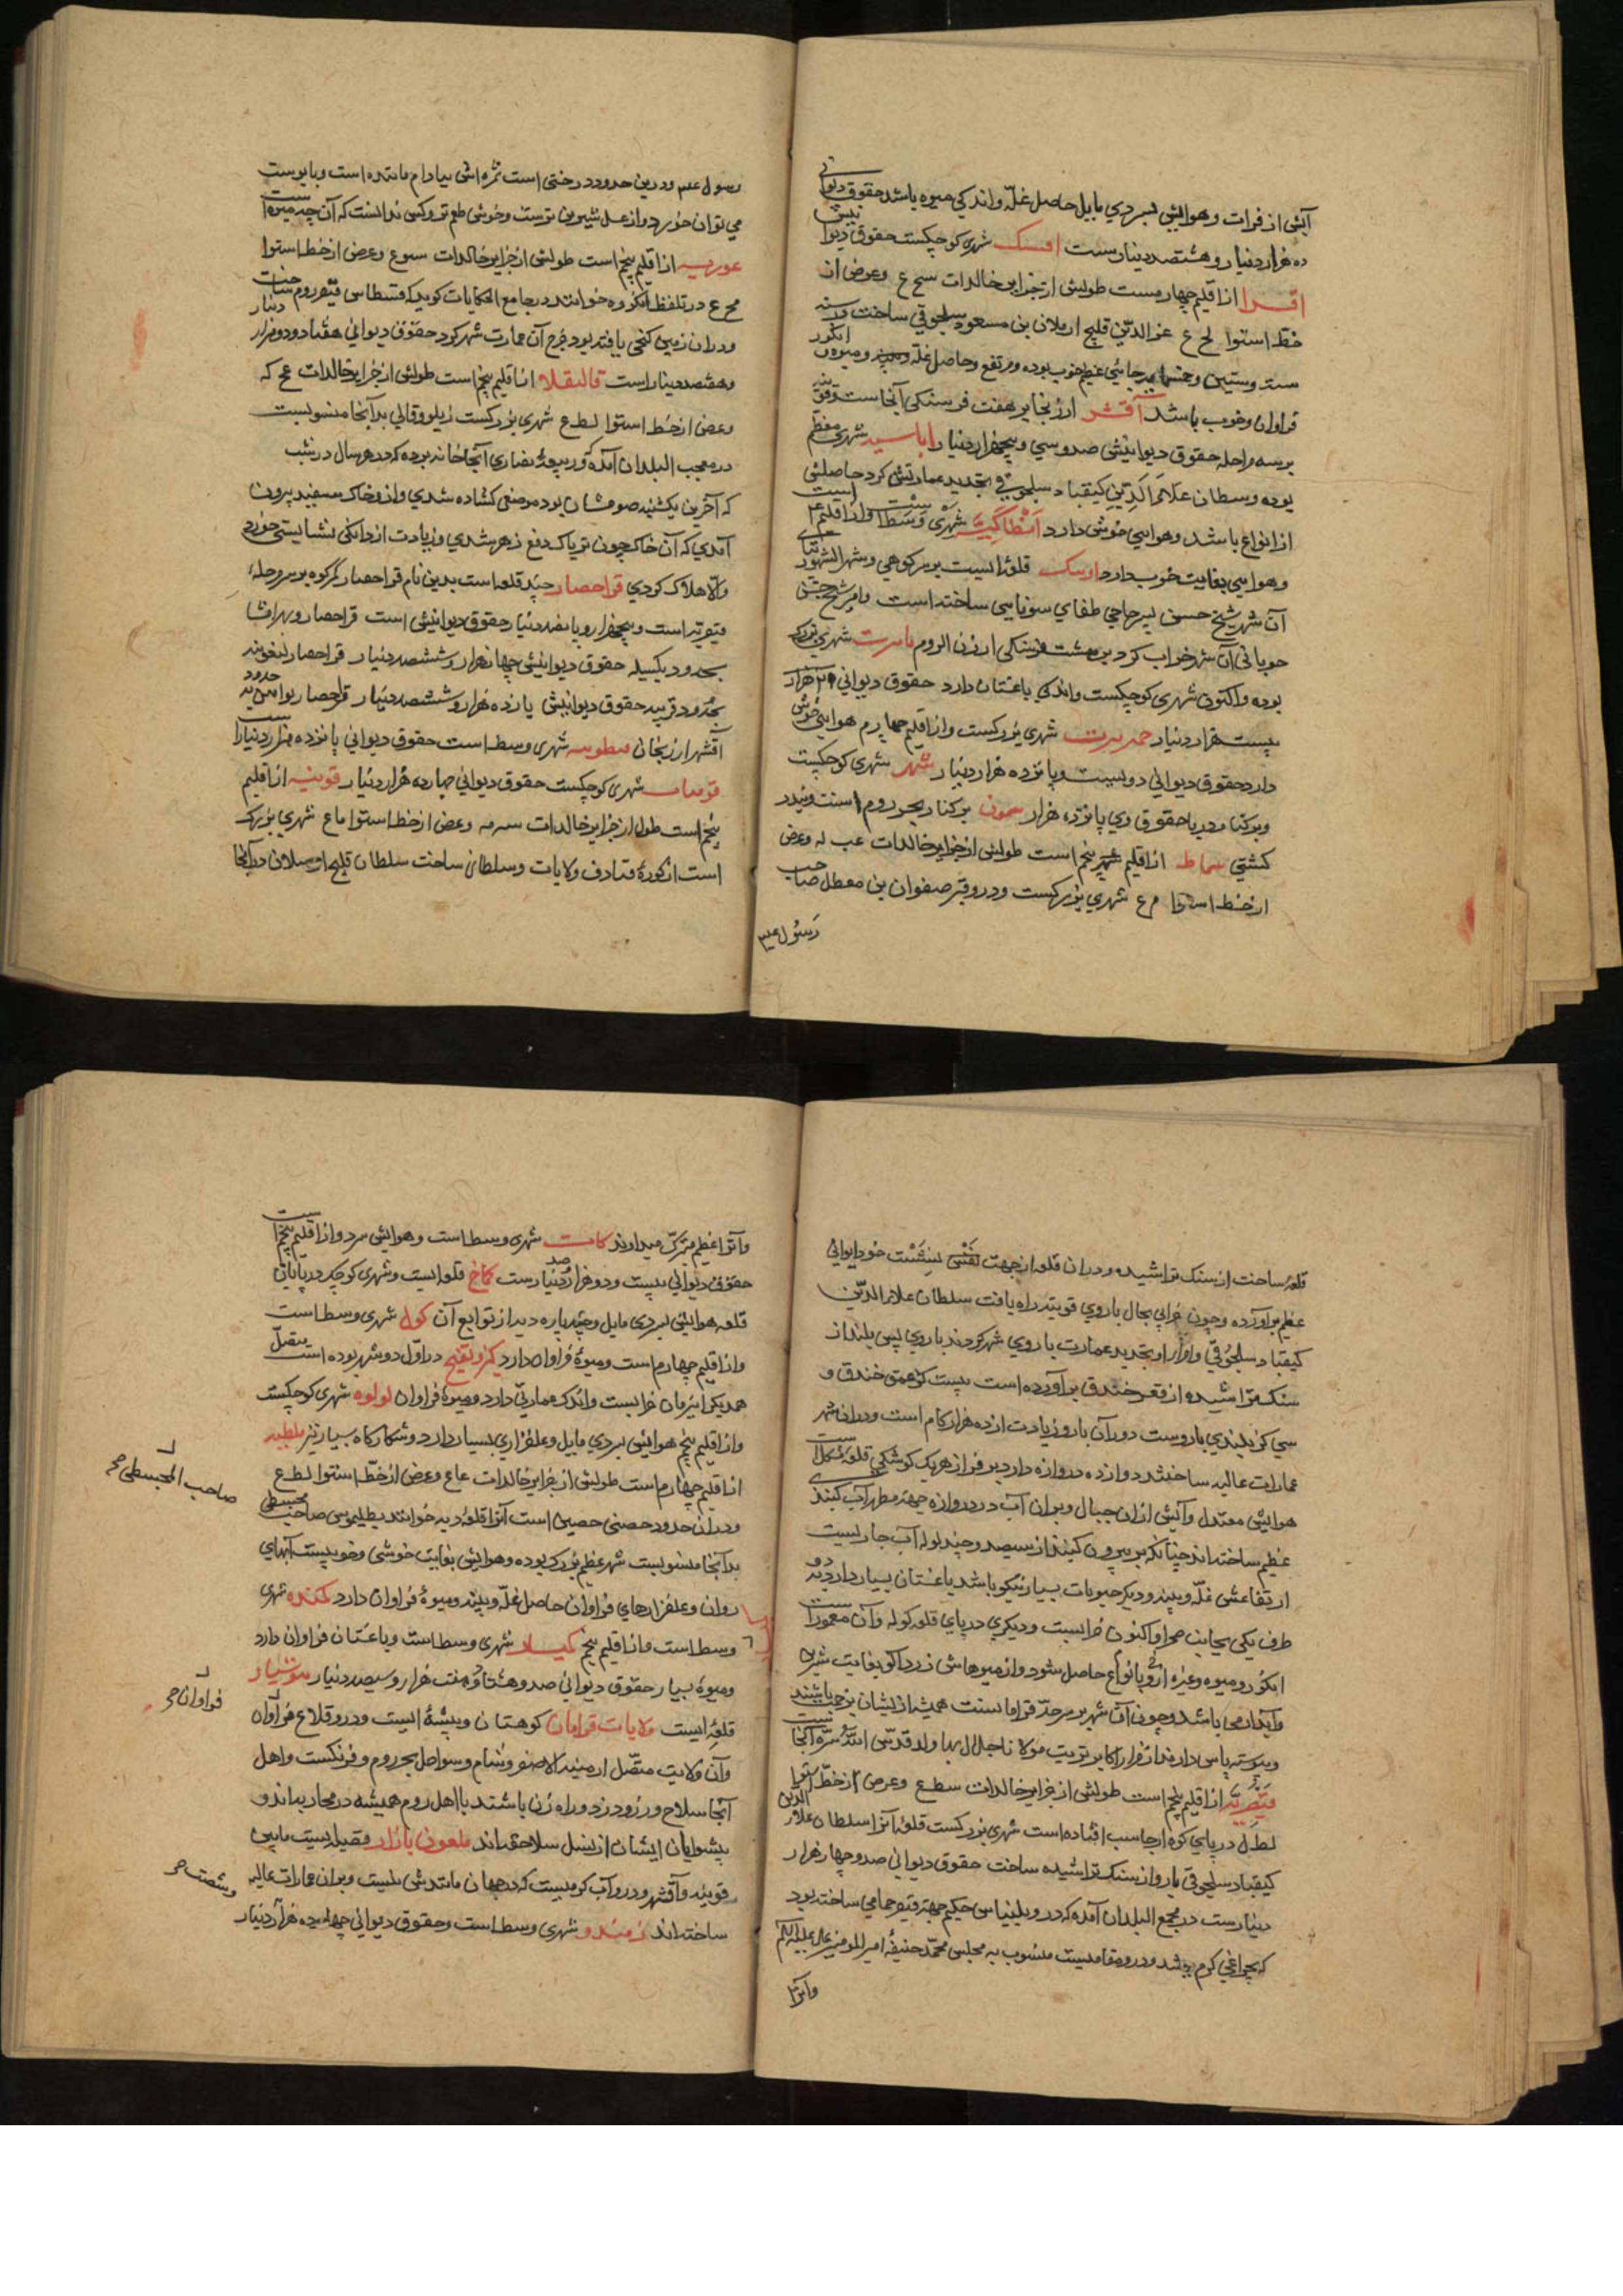 آبش از فرات و هوایش بسردی مایل حاصل غله و اندکی میوه باشد حقوق دیوانی
ده هزار دینار و هشتصد دینارست شهری کوچکست حقوق دیوانیش
اقسرا از اقلیم چهارمست طولش از جزایر خالدات و عرض از
خط استوا لح ع عز الدین قلیج ارسلان بن مسعود سلجوقی ساخت در سنه
جائی عظیم خوب بوده و مرتفع و حاصل غله و میوه و انکور
فراوان و خوب باشد آقشهر ارزنجان بر هفت فرسنکی آنجاست و قونیه
بر سه مرحله حقوق دیوانیش صد و سی و پنجهزار دینار اماسیه شهری معظم
بوده و سلطان علاء الدین کیقباد سلجوقی تجدید عمارتش کرد حاصلش
از انواع باشد و هوایی خوش دارد انطاکیه شهری وسط است و از اقلیم ۴
و هوایی بغایت خوب دارد اونیک قلعۀ است بر سر کوهی و شهر
آن شهر شیخ حسن پسر حاجی طغای سوتایی ساخته است و امیر شیخ حسن
جوپانی آن شهر خراب کرد بر هشت فرسنکی ارزن الروم بابرت شهری بزرک
بوده و اکنون شهری کوچکست و اندکی باغستان دارد حقوق دیوانی ۲۱ هزار
بیست هزار دینار شهری بزرکست و از اقلیم چهارم هوایش خوش
دارد حقوق دیوانی دویست و پانزده هزار دینار شهر شهری کوچکست
و بر کنار دریا حقوق وی پانزده هزار سمون بر کنار بحر روم است و بندر
کشتی سماط از اقلیم پنجم است طولش از جزایر خالدات عب له و عرض
از خط استوا م ع شهری بزرکست و درو قبر صفوان بن معطل صاحب
رسول عیم
رسول عیم و درین حدود درختی است ثمره اش ببادام ماننده است و با پوست
می توان خورد و از عسل شیرین ترست و خوش طعم تر و کس ندانست که آن چه میوه است
عوریه از اقلیم پنجم است طولش از جزایر خالدات سوع و عرض از خط استوا
مح ع در تلفظ انکوره خوانند در جامع الحکایات کوید که قسطاس قیصر روم ساخت
و در آن زمین کنجی یافته بود خرج آن عمارت شهر کرد حقوق دیوانی هفتاد و دو هزار دینار
و هشتصد دینار است قالیقلا از اقلیم پنجم است طولش از جزایر خالدات عح که
و عرض از خط استوا لط ع شهری بزرکست زیلو و قالی بدآنجا منسوبست
در معجب البلدان آمده که در بیعۀ نصاری آنجا خانه بوده که در هر سال در شب
که آخرین یکشنبه صومشان بود موضعی کشاده شدی و ازو خاک سفید بیرون
آمدی که آن خاک چون تریاک دفع زهر شدی و زیادت از دانکی نشایستی خورد
والا هلاک کردی قراحصار چند قلعه است بدین نام قراحصار کمرکوه بر سر مرحلۀ
قیصریه است و پنجهزار و پانصد دینار حقوق دیوانیش است قراحصار و بهرامشاه
بحدود یکسله حقوق دیوانیش چهار هزار و ششصد دینار قراحصار
بحدود قونیه حقوق دیوانیش یازده هزار و ششصد دینار قراحصار نوا مین بحدود
آقشهر ارزنجان قسطونیه شهری وسط است حقوق دیوانی پانزده هزار دینار است
قومنات شهری کوچکست حقوق دیوانی چهارده هزار دینار قونیه از اقلیم
پنجم است طول از جزایر خالدات سه مه و عرض از خط استوا ما ع شهری بزرک
است از کورۀ قبادق ولایات و سلطانی ساخت سلطان قلیج ارسلان در آنجا
قلعه ساخت از سنک تراشیده و در آن قلعه از جهت نفس بنشست خود ایوانی
عظیم برآورده و چون خرابی بحال باروی قونیه راه یافت سلطان علاء الدین
کیقباد سلجوقی و امرا او تجدید عمارت باروی شهر کردند باروی پس بلند از
سنک تراشیده از قعر خندق برآورده است بیست کز عمق خندق و
سی کز بلندی باروست دور آن بارو زیادت از ده هزار کام است و در آن شهر
عمارات عالیه ساختند دوازده دروازه دارد بر فراز هر یک کوشکی قلعه شکل است
هوایش معتدل و آبش از آن جبال و بر آن آب در دروازه جهة مطهر آب کنبد
عظیم ساخته اند چنانکه بر بیرون کنبد از سیصد و چند لوله آب جاریست
ارتفاعش غله و پنبه و دیکر حبوبات بسیار نیکو باشد باغستان بسیار دارد بدو
طرف یکی بجانب صحرا و اکنون خرابست و دیکری در پای قلعه کوله و آن معمور است
انکور و میوه و غیره ازو بانواع حاصل شود و از میوهاش زردآلو بغایت شیرین
و آبدار می باشد و چون آن شهر بر سرحد قرامانست همیشه از ایشان بزحمت باشند
و پیوسته پاس دارند از مزار اکابر تربت مولانا جلال بها ولد قدس الله سره آنجاست
قیصریه از اقلیم پنجم است طولش از جزایر خالدات سط ع و عرض از خط استوا
لط ل در پای کوه ارجاسب افتاده است شهری بزرکست قلعۀ آنرا سلطان علاء الدین
کیقباد سلجوقی بارو از سنک تراشیده ساخت حقوق دیوانی صد و چهار هزار
دینارست در مجمع البلدان آمده که درو بلیناس حکیم جهة قیصر حمامی ساخته بود
که بچراغی کرم می شد و درو مقامیست منسوب به مجلس محمد حنیفه امیر المومنین علی علیه السلم
و آنرا
و آنرا عظیم متبرک میدارند کامت شهری وسط است و هوایش سرد و از اقلیم پنجم است
حقوق دیوانی بیست و دو هزار و صد دینارست کماخ قلعه ایست و شهری کوچک در پایان
قلعه هوایش بسردی مایل و چند پاره دیه از توابع آن کول شهری وسط است
و از اقلیم چهارم است و میوۀ فراوان دارد کیر و بقیح در اول دو شهر بوده است متصل
همدیکر این زمان خرابست و اندک عمارتی دارد و میوۀ فراوان لولوه شهری کوچکست
و از اقلیم پنجم هوایش بسردی مایل و علفزاری بسیار دارد و شکارکاه بسیار نیز ملطیه
از اقلیم چهارم است طولش از جزایر خالدات عا ع و عرض از خط استوا لط ع
و در آن حدود حصنی حصین است آنرا قلعۀ دیه خوانند بطلیموس صاحب مجسطی
بدآنجا منسوبست شهر عظیم بزرک بوده و هوایش بغایت خوشی و خوبیست آبهای
روان و علفزارهای فراوان حاصل غله و پنبه و میوۀ فراوان دارد کمنده شهری
وسط است و از اقلیم پنجم کیساد شهری وسط است و باغستان فراوان دارد
و میوۀ بسیار حقوق دیوانی صد و هشتاد و هفت هزار و سیصد دینار موشیار
قلعۀ ایست ولایات قرامان کوهستان و بیشۀ ایست و درو قلاع فراوان
و آن ولایت متصل ارمنیه الاصغر و شام و سواحل بحر روم و فرنکست و اهل
آنجا سلاح ورز و دزد و راه زن باشند با اهل روم همیشه در محاربه اند و
پیشوایان ایشان از نسل سلاجقه اند ملعون بازار قصبۀ ایست مابین
قونیه و آقشهر و درو آب کرمیست که در جهان مانندش نیست و بر آن عمارات عالیه
ساخته اند زمندو شهری وسط است و حقوق دیوانی چهارده هزار دینار
صاحب المجسطی صح
فراوان صح